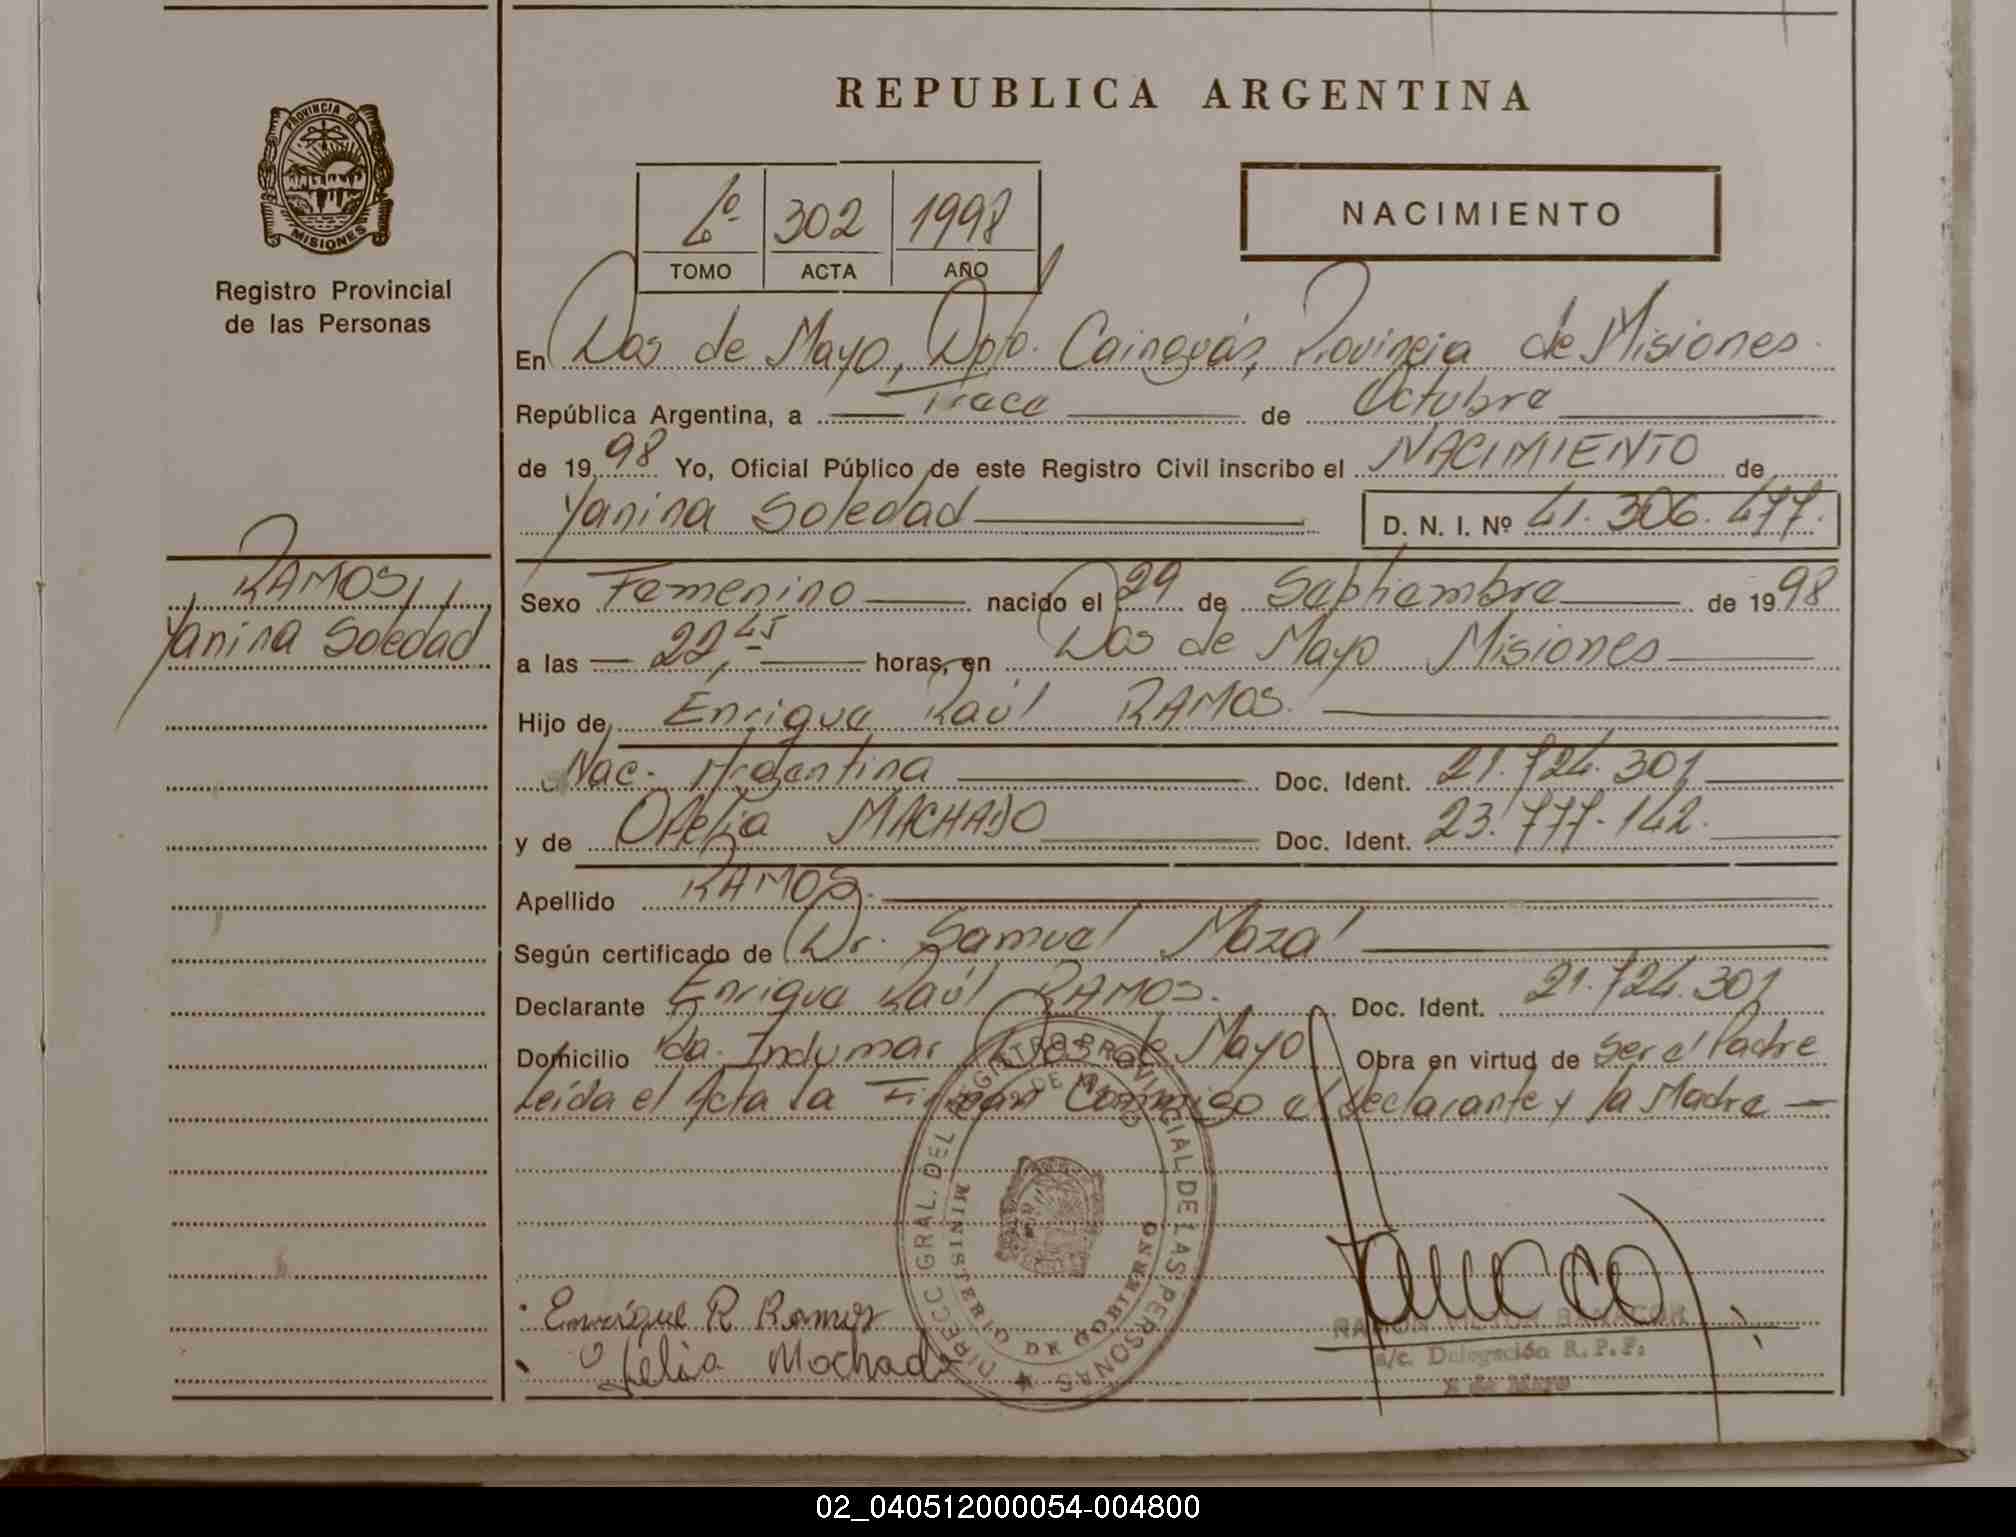 REPUBLICA ARGENTINA
PROVINCIA DE
MISIONES
Registro Provincial
de las Personas
4º 302 1998
TOMO ACTA AÑO
NACIMIENTO
En Dos de Mayo, Dpto. Cainguás, Provincia de Misiones
República Argentina, a Trece de Octubre
de 1998 Yo, Oficial Público de este Registro Civil inscribo el NACIMIENTO de
Yanina Soledad D. N. I. Nº 41.306.477.
RAMOS,
Yanina Soledad
Sexo Femenino nacido el 29 de Septiembre de 1998
a las 22,45 horas, en Dos de Mayo Misiones
Hijo de Enrique Raúl RAMOS.
Nac. Argentina Doc. Ident. 21.724.301
y de Ofelia MACHADO Doc. Ident. 23.777.142.
Apellido RAMOS.
Según certificado de Dr. Samuel Mazal
Declarante Enrique Raúl RAMOS. Doc. Ident. 21.724.301
Domicilio Pda. Indumar Dos de Mayo Obra en virtud de Ser el Padre
Leída el Acta la Firman Conmigo el declarante y la Madre
DIRECC. GRAL. DEL REGISTRO PROVINCIAL DE LAS PERSONAS
MINISTERIO DE GOBIERNO
Enrique R Ramos
Ofelia Machado
a/c. Delegación R. P. P.
2 de Mayo
02_040512000054-004800